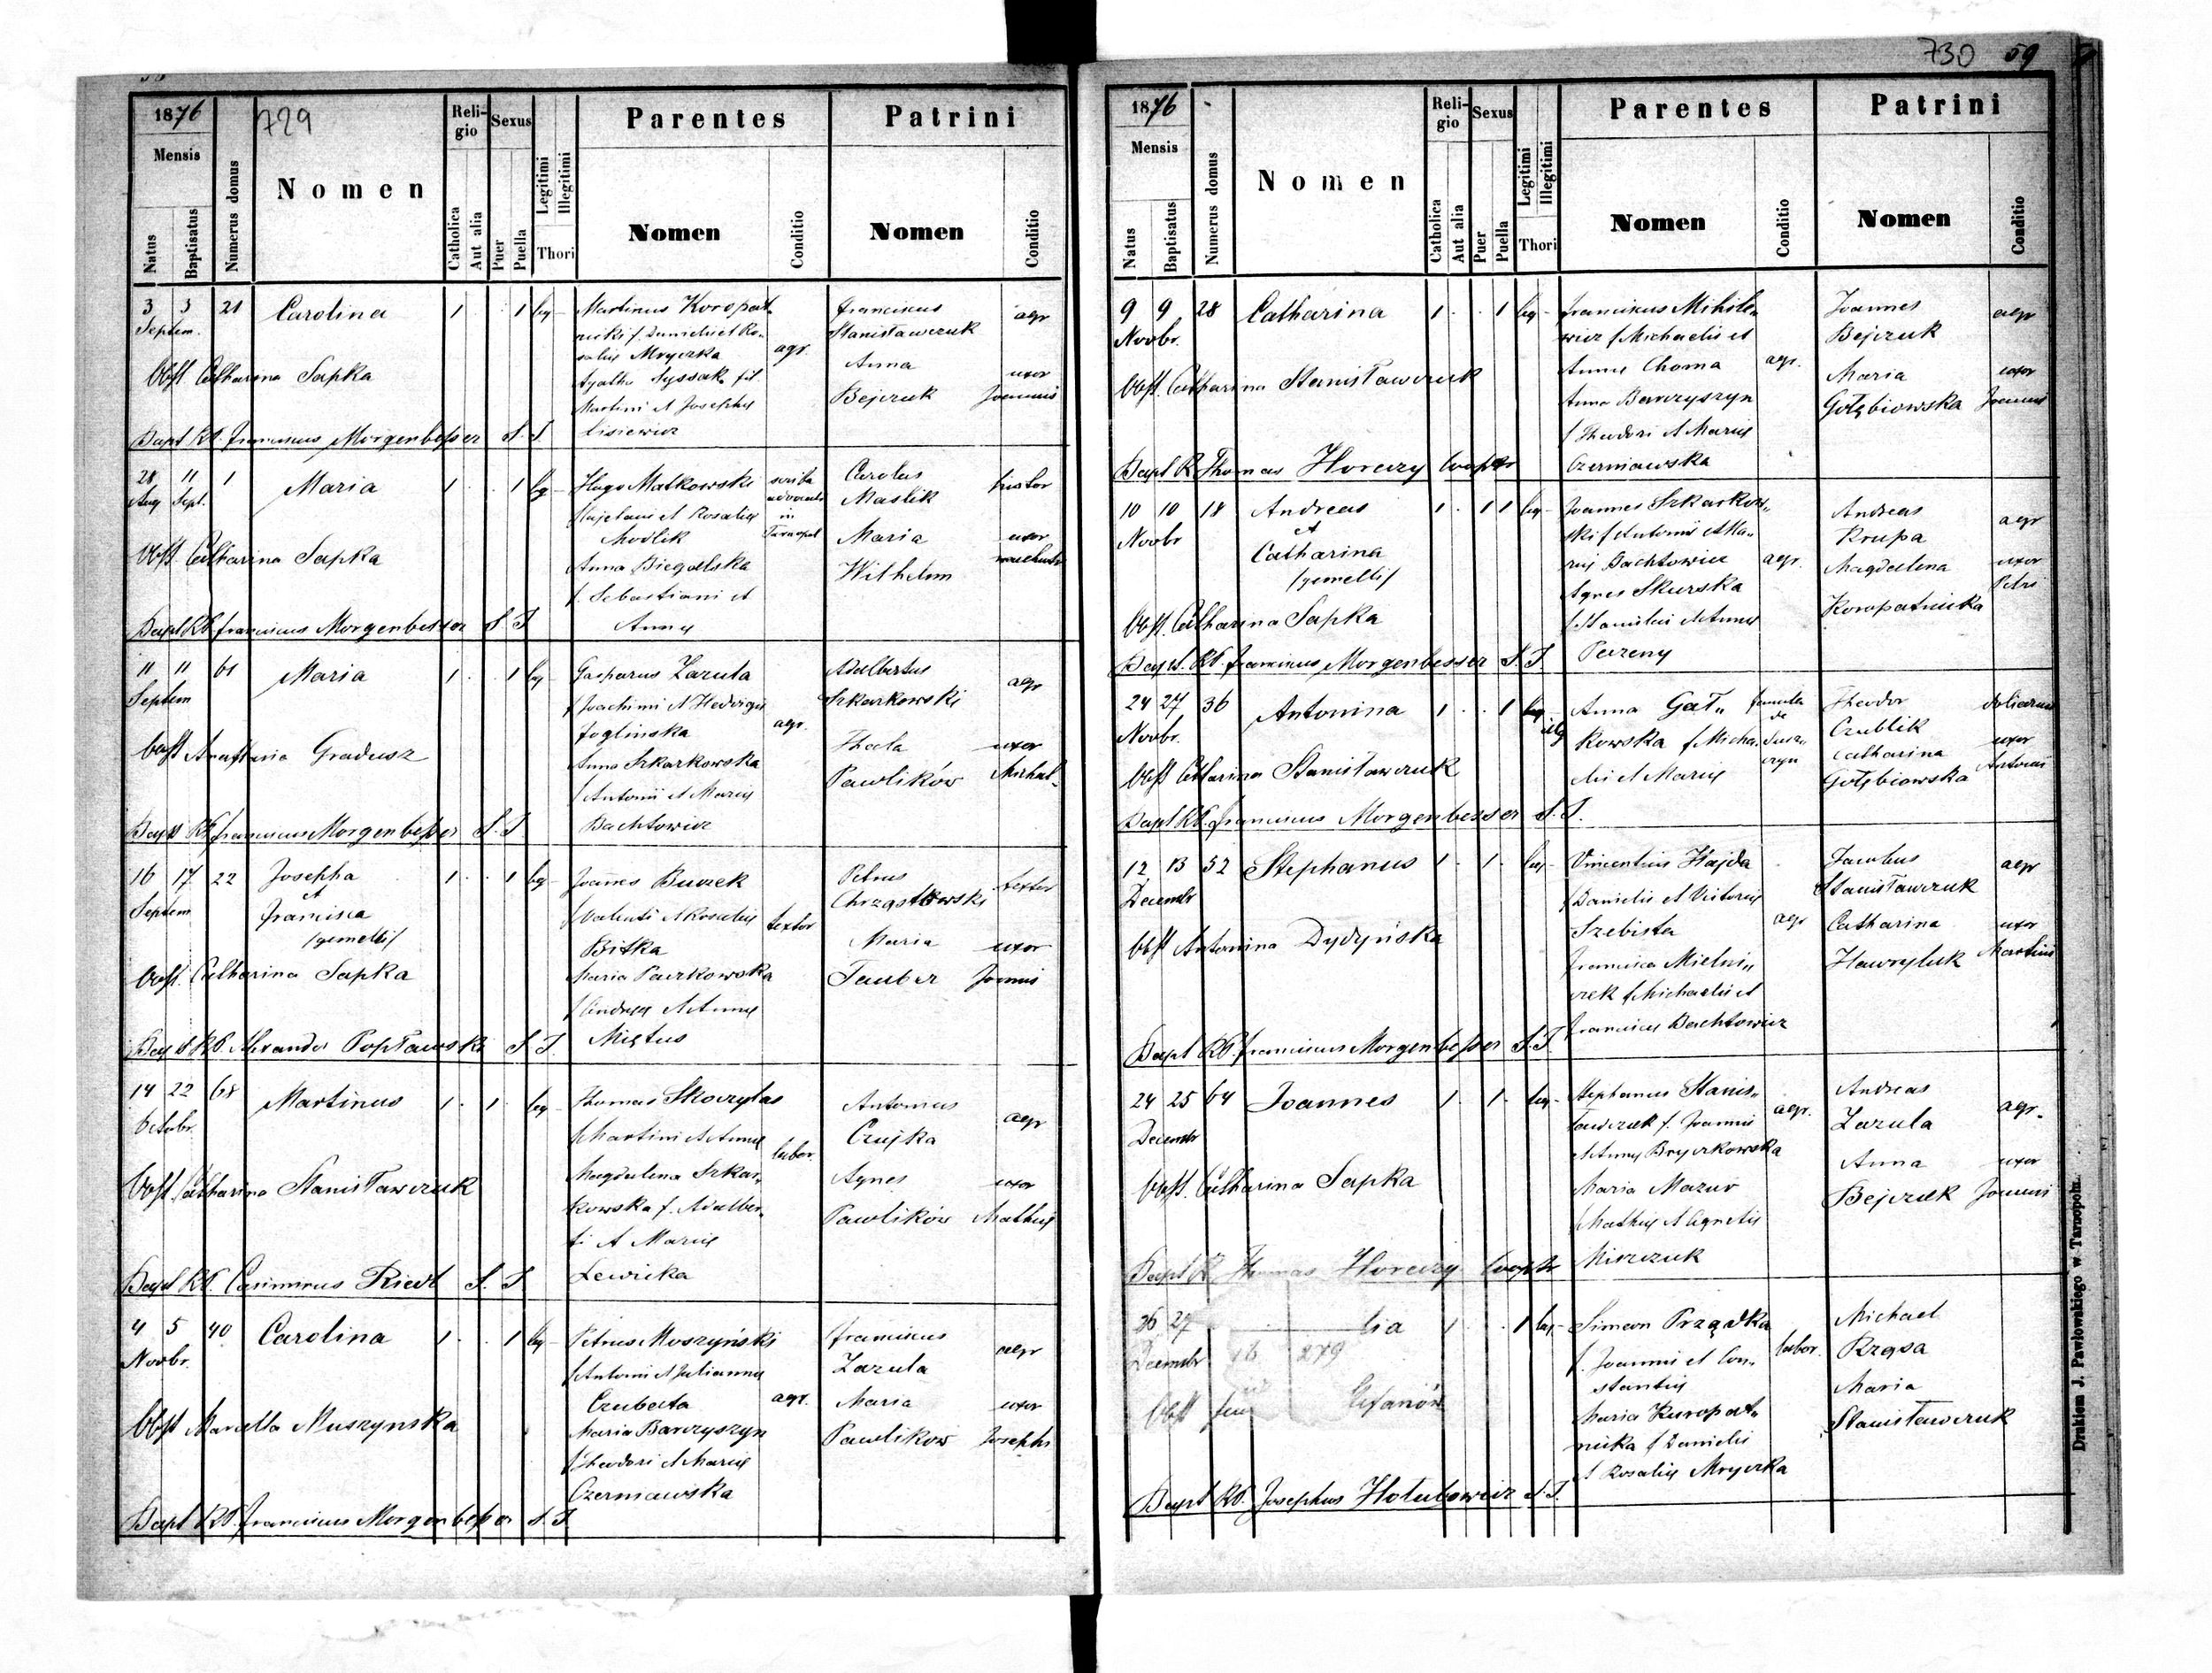 729
1876
Mensis
Natus
Baptisatus
Numerus domus
Nomen
Religio
Catholica
Aut alia
Sexus
Puer
Puella
Legitimi
Illegitimi
Thori
Parentes
Nomen
Conditio
Patrini
Nomen
Conditio
3 3 21 Carolina 1 1 leg
Septem.
Martinus Koropat„
nicki f Danielis et Ro„
salię Mryczka
Agatha Syssak fil.
Martini et Josephę
Lisiewicz
agr.
Franciscus
Stanisławczuk
agr
Anna uxor
Bejczuk Joannis
Obst. Catharina Sapka
Bapt RP. Franciscus Morgenbesser S. J.
28 11 1 Maria 1 1 leg
Aug Sept.
Hugo Malkowski
Modlik
Anna Biegalska
f. Sebastiani et
Annę
scriba
in
Tarnopol
Carolus
Maslik
Maria uxor
Wilhelm
Obst Catharina Sapka
Bapt RP. Franciscus Morgenbesser S. J
11 11 61 Maria 1 1 leg
Septem
Gasparus Zazula
f Joachimi et Hedvigis
Joglinska
Anna Szkarkowska
f Antonii et Marię
Bachtowicz
agr.
Adalbertus
Szkarkowski
agr
Thecla uxor
Pawlików Michael.
Obst Anastasia Gradusz
Bapt RP Franciscus Morgenbesser S. J
16 17 22 Josepha 1 1 leg
Septem
et
Francisca
/gemelli/
Joannes Buczek
f Valenti et Rosalię
Bitka
Maria Paczkowska
f Andreę et Annę
Miętus
textor
Petrus
Chrząstkowski
textor
Maria uxor
Tauber Joannis
Obst. Catharina Sapka
Bapt RP. Alexander Popławski S J.
14 22 68 Martinus 1 1 leg
Octobr.
Thomas Skoczylas
f Martini et Annę
Magdalena Szkar„
kowska f. Adalber„
ti et Marię
Lewicka
labor.
Antonius
Czujka
agr
Agnes uxor
Pawlików Mathię
Obst. Catharina Stanisławczuk
Bapt RP. Casimirus Riedl S. J
4 5 40 Carolina 1 1 leg
Novbr.
Petrus Moszyński
f Antoni et Juliannę
Czubata
Maria Barczyszyn
f Theodori et Marię
Czerniawska
agr.
Franciscus
Zazula
agr
Maria uxor
Pawlikow Josephi
Obst Marcella Muszynska
Bapt RP. Franciscus Morgenbesser S. J.
730 59
1876
Mensis
Natus
Baptisatus
Numerus domus
Nomen
Religio
Catholica
Aut alia
Sexus
Puer
Puella
Legitimi
Illegitimi
Thori
Parentes
Nomen
Conditio
Patrini
Nomen
Conditio
9 9 28 Catharina 1 1 leg
Novbr.
Franciscus Mihile„
wicz f Michaelis et
Annę Choma
Anna Barczyszyn
f Theodori et Marię
Czerniawska
agr.
Joannes
Bejczuk
agr
Maria uxor
Gołębiowska Joannis
Obst. Catharina Stanisławczuk
Bapt R. Thomas Horczy Cooptr
10 10 18 Andreas 1 1 1 leg
Novbr
et
Catharina
/gemelli/
Joannes Szkarkow„
ski f Antonii et Ma„
rię Bachtowicz
Agnes Skurska
f Stanislai et Annę
Pareny
agr.
Andreas
Krupa
agr
Magdalena uxor
Koropatnicka Petri
Obst. Catharina Sapka
Bapt. RP. Franciscus Morgenbesser S. J.
24 27 36 Antonina 1 1 leg
illg
Novbr.
Anna Gał„
kowska f Micha„
elis et Marię
famula
de
Theodor
Czublik
doliarius
Catharina uxor
Gołębiowska Antonii
Obst Catharina Stanisławczuk
Bapt RP. Franciscus Morgenbesser S. J.
12 13 52 Stephanus 1 1 leg
Decembr
Vincentius Hajda
f Danielis et Victorię
Szebista
Francisca Mielni„
czek f Michaelis et
Francisę Bachtowicz
agr
Jacobus
Stanisławczuk
agr
Catharina uxor
Hawryluk Martini
Obst Antonina Dydyńska
Bapt RP. Franciscus Morgenbesser S. J.
24 25 64 Joannes 1 1 leg
Decembr
Stephanus Stanis„
ławczuk f. Joannis
et Annę Bryczkowska
Maria Mazur
f Mathię et Agnetis
Miszczuk
agr.
Andreas
Zazula
agr.
Anna uxor
Bejczuk Joannis
Obst. Catharina Sapka
Bapt R. Thomas Horczy Cooptr
26 27 lia 1 1 leg
Decembr 279
Simeon Prządka
f. Joannis et Con„
stantię
Maria Kuropat„
nicka f Danielis
et Rosalię Mryczka
labor.
Michael
Rząsa
Maria
Stanisławczuk
Obst Stefanów
Bapt RP. Josephus Hołubowicz S. J.
Drukiem J. Pawłowskiego w Tarnopolu.